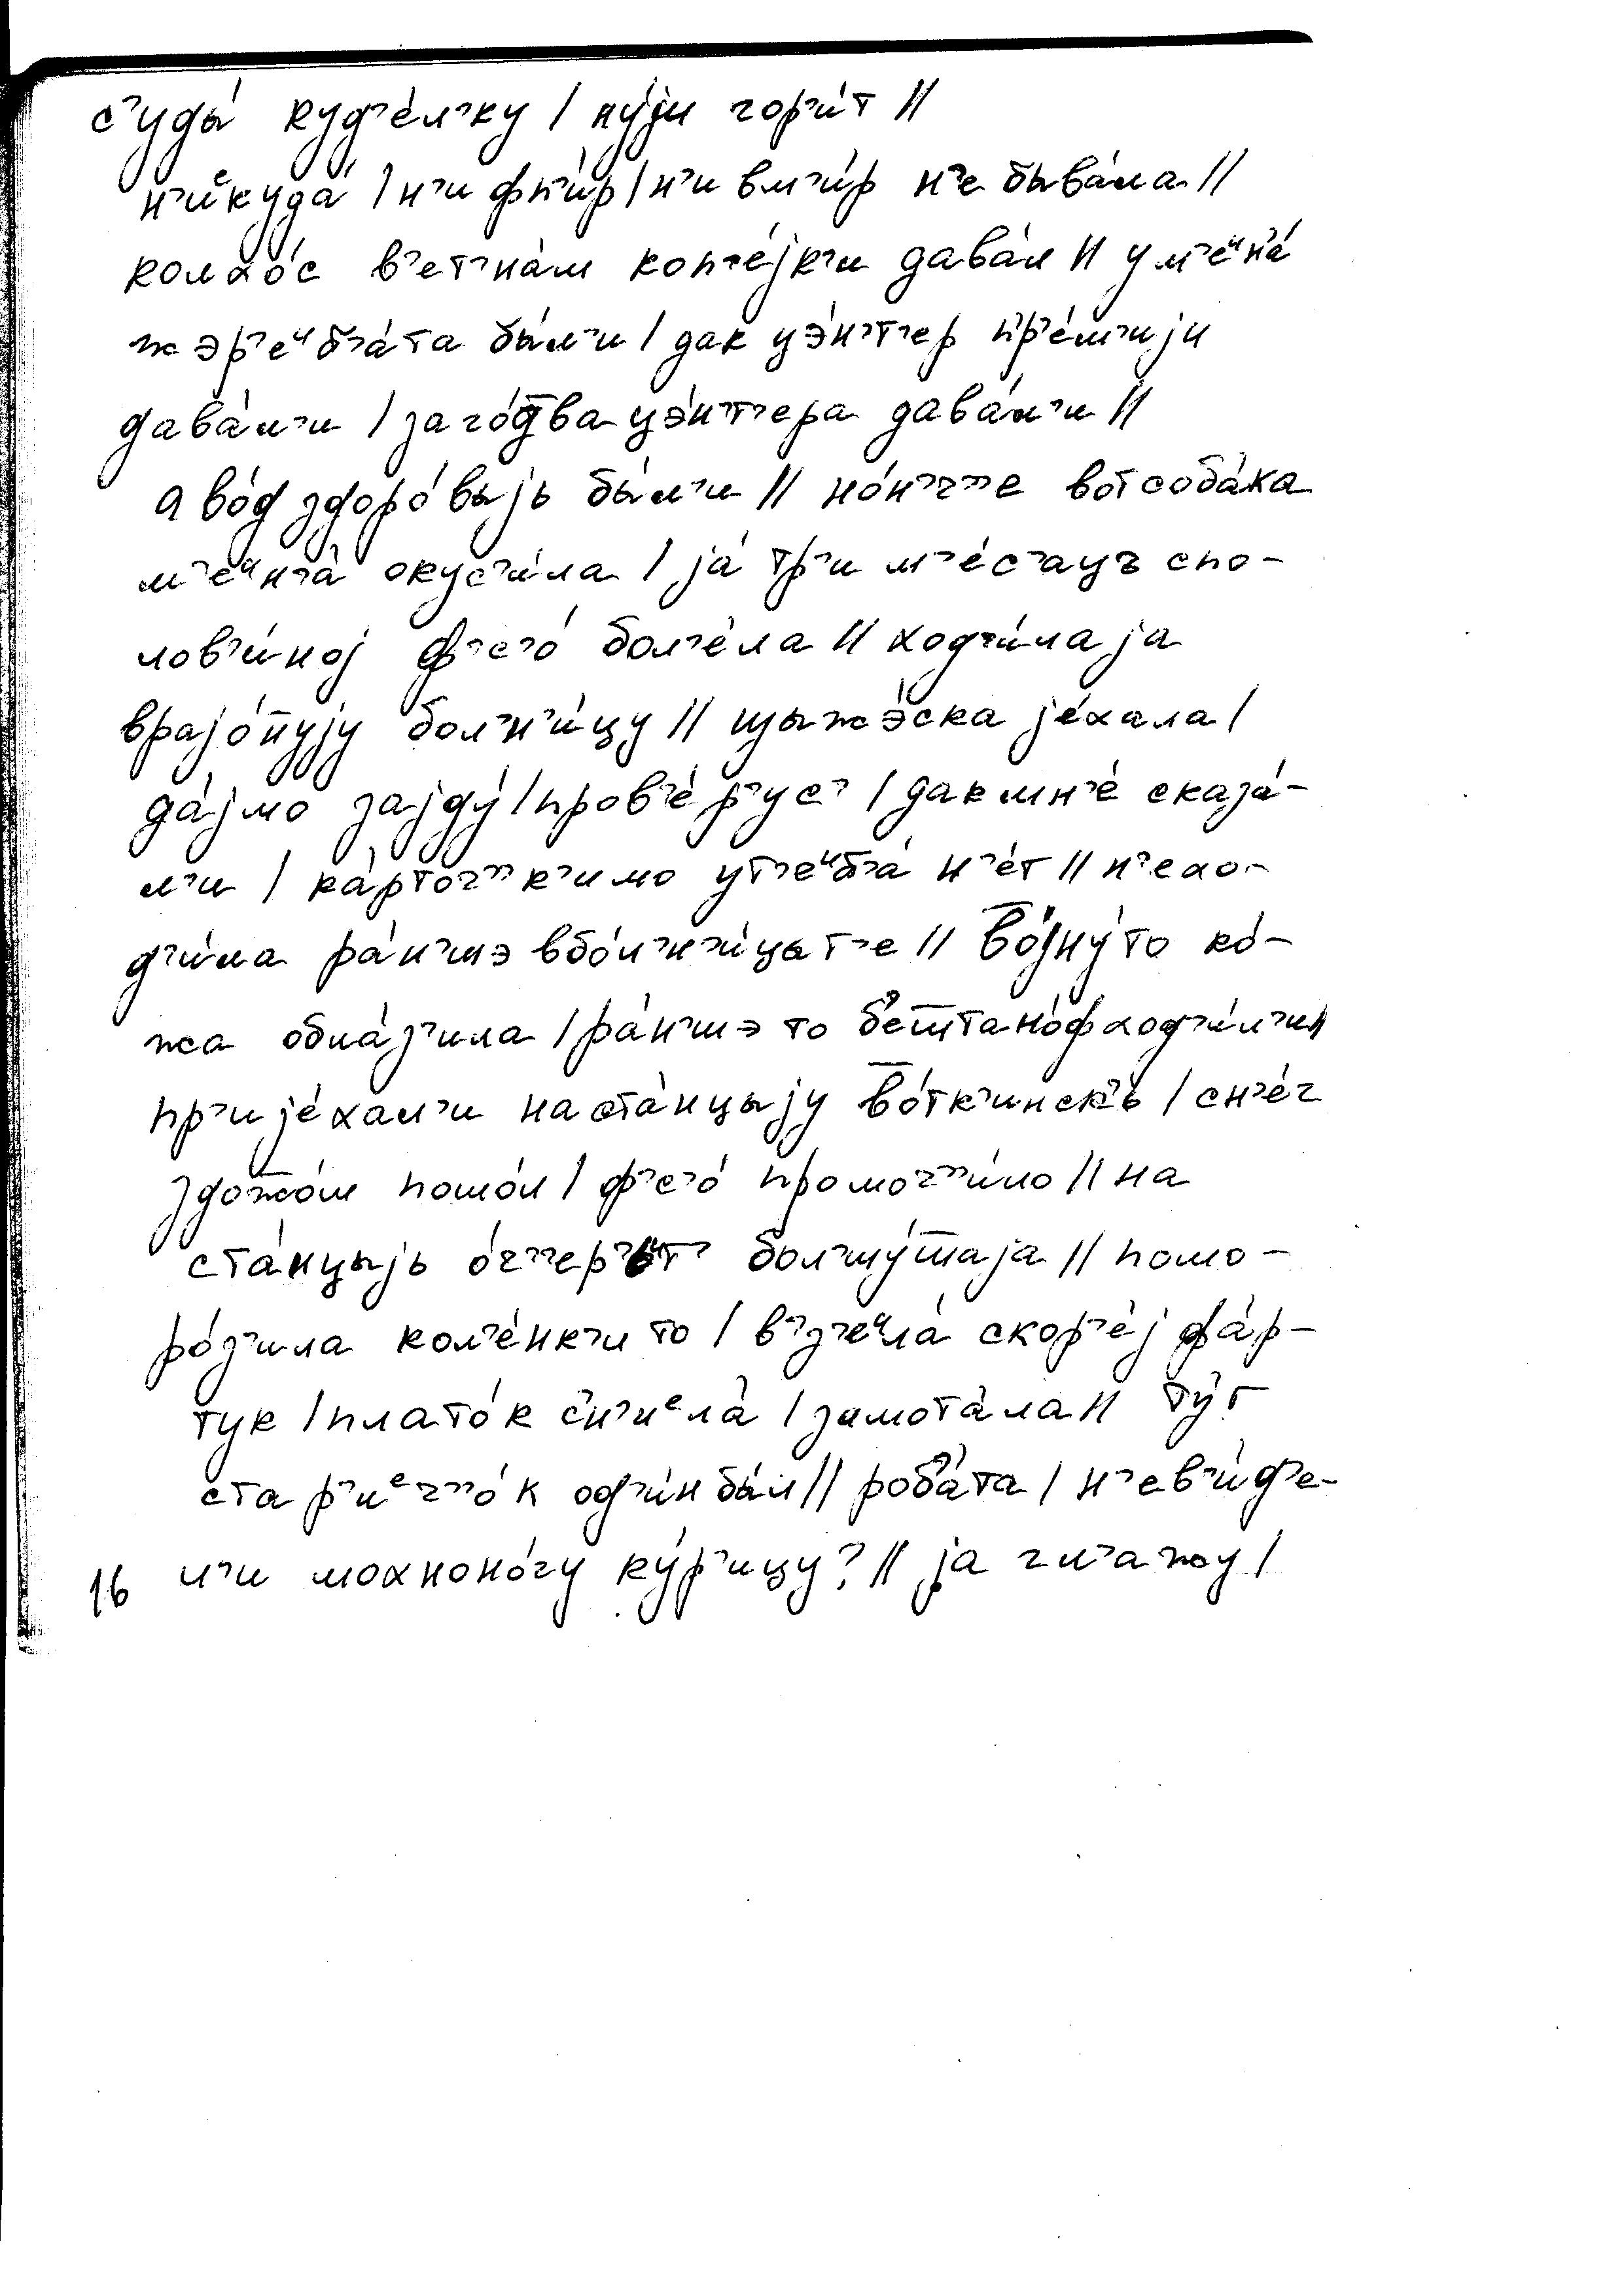 с'уды́ куд'е́л'ку / ну́jи гор'и́т //
н'иᵉкуда́ / н'и фп'и́р / н'и вм'и́р н'е быва́ла //
колхо́с в'ет'на́м коп'е́jк'и дава́л // у м'еᵘн'е́
жэр'еᵘб'а́та бы́л'и / дак цэ́н'т'ер пр'е́м'иjи
дава́л'и / заго́т̄ва цэ́н'т'ера дава́л'и //
а во́д здоро́выjь бы́л'и // но́н'ч''е вот соба́ка
м'еᵘн'а́ окус'и́ла / jа́ тр'и м'е́с'ацъ спо-
лов'и́ноj ф'с'о́ бол'е́ла // ход'и́ла jа
враjо́нуjу бол'н'и́цу // щыжэ́ска jе́хала /
да́jмо заjду́ / пров'е́р'ус' / дак мн'е́ сказа́-
л'и / ка́рточ''к'имо у т'еᵘб'а́ н'е́т // н'е хо-
д'и́ла ра́н'шэ вбо́л'н'и́цы т'е // во̄jну́ то ко́-
жа обла́з'ила / ра́н'шэ то б'ештано́ф ход'и́л'и //
пр'иjе́хал'и на ста́нцыjу во́тк'инск'ь / сн'е́г
здожо́м пошо́л / ф'с'о́ промоч''и́ло // на
ста́нцыjь о́ч''ер'ьт' бол'шу́шаjа // помо-
ро́з'ила кол'е́нк'и то / в'з'еᵘла́ скор'е́j фа́р-
тук / плато́к с'н'иᵉла́ / замота́ла // ту́т
стар'иᵉч''о́к од'и́н бы́л // роб'а́та / н'е в'и́д'е-
л'и мохноно́гу ку́р'ицу? // jа гл'ажу /
16